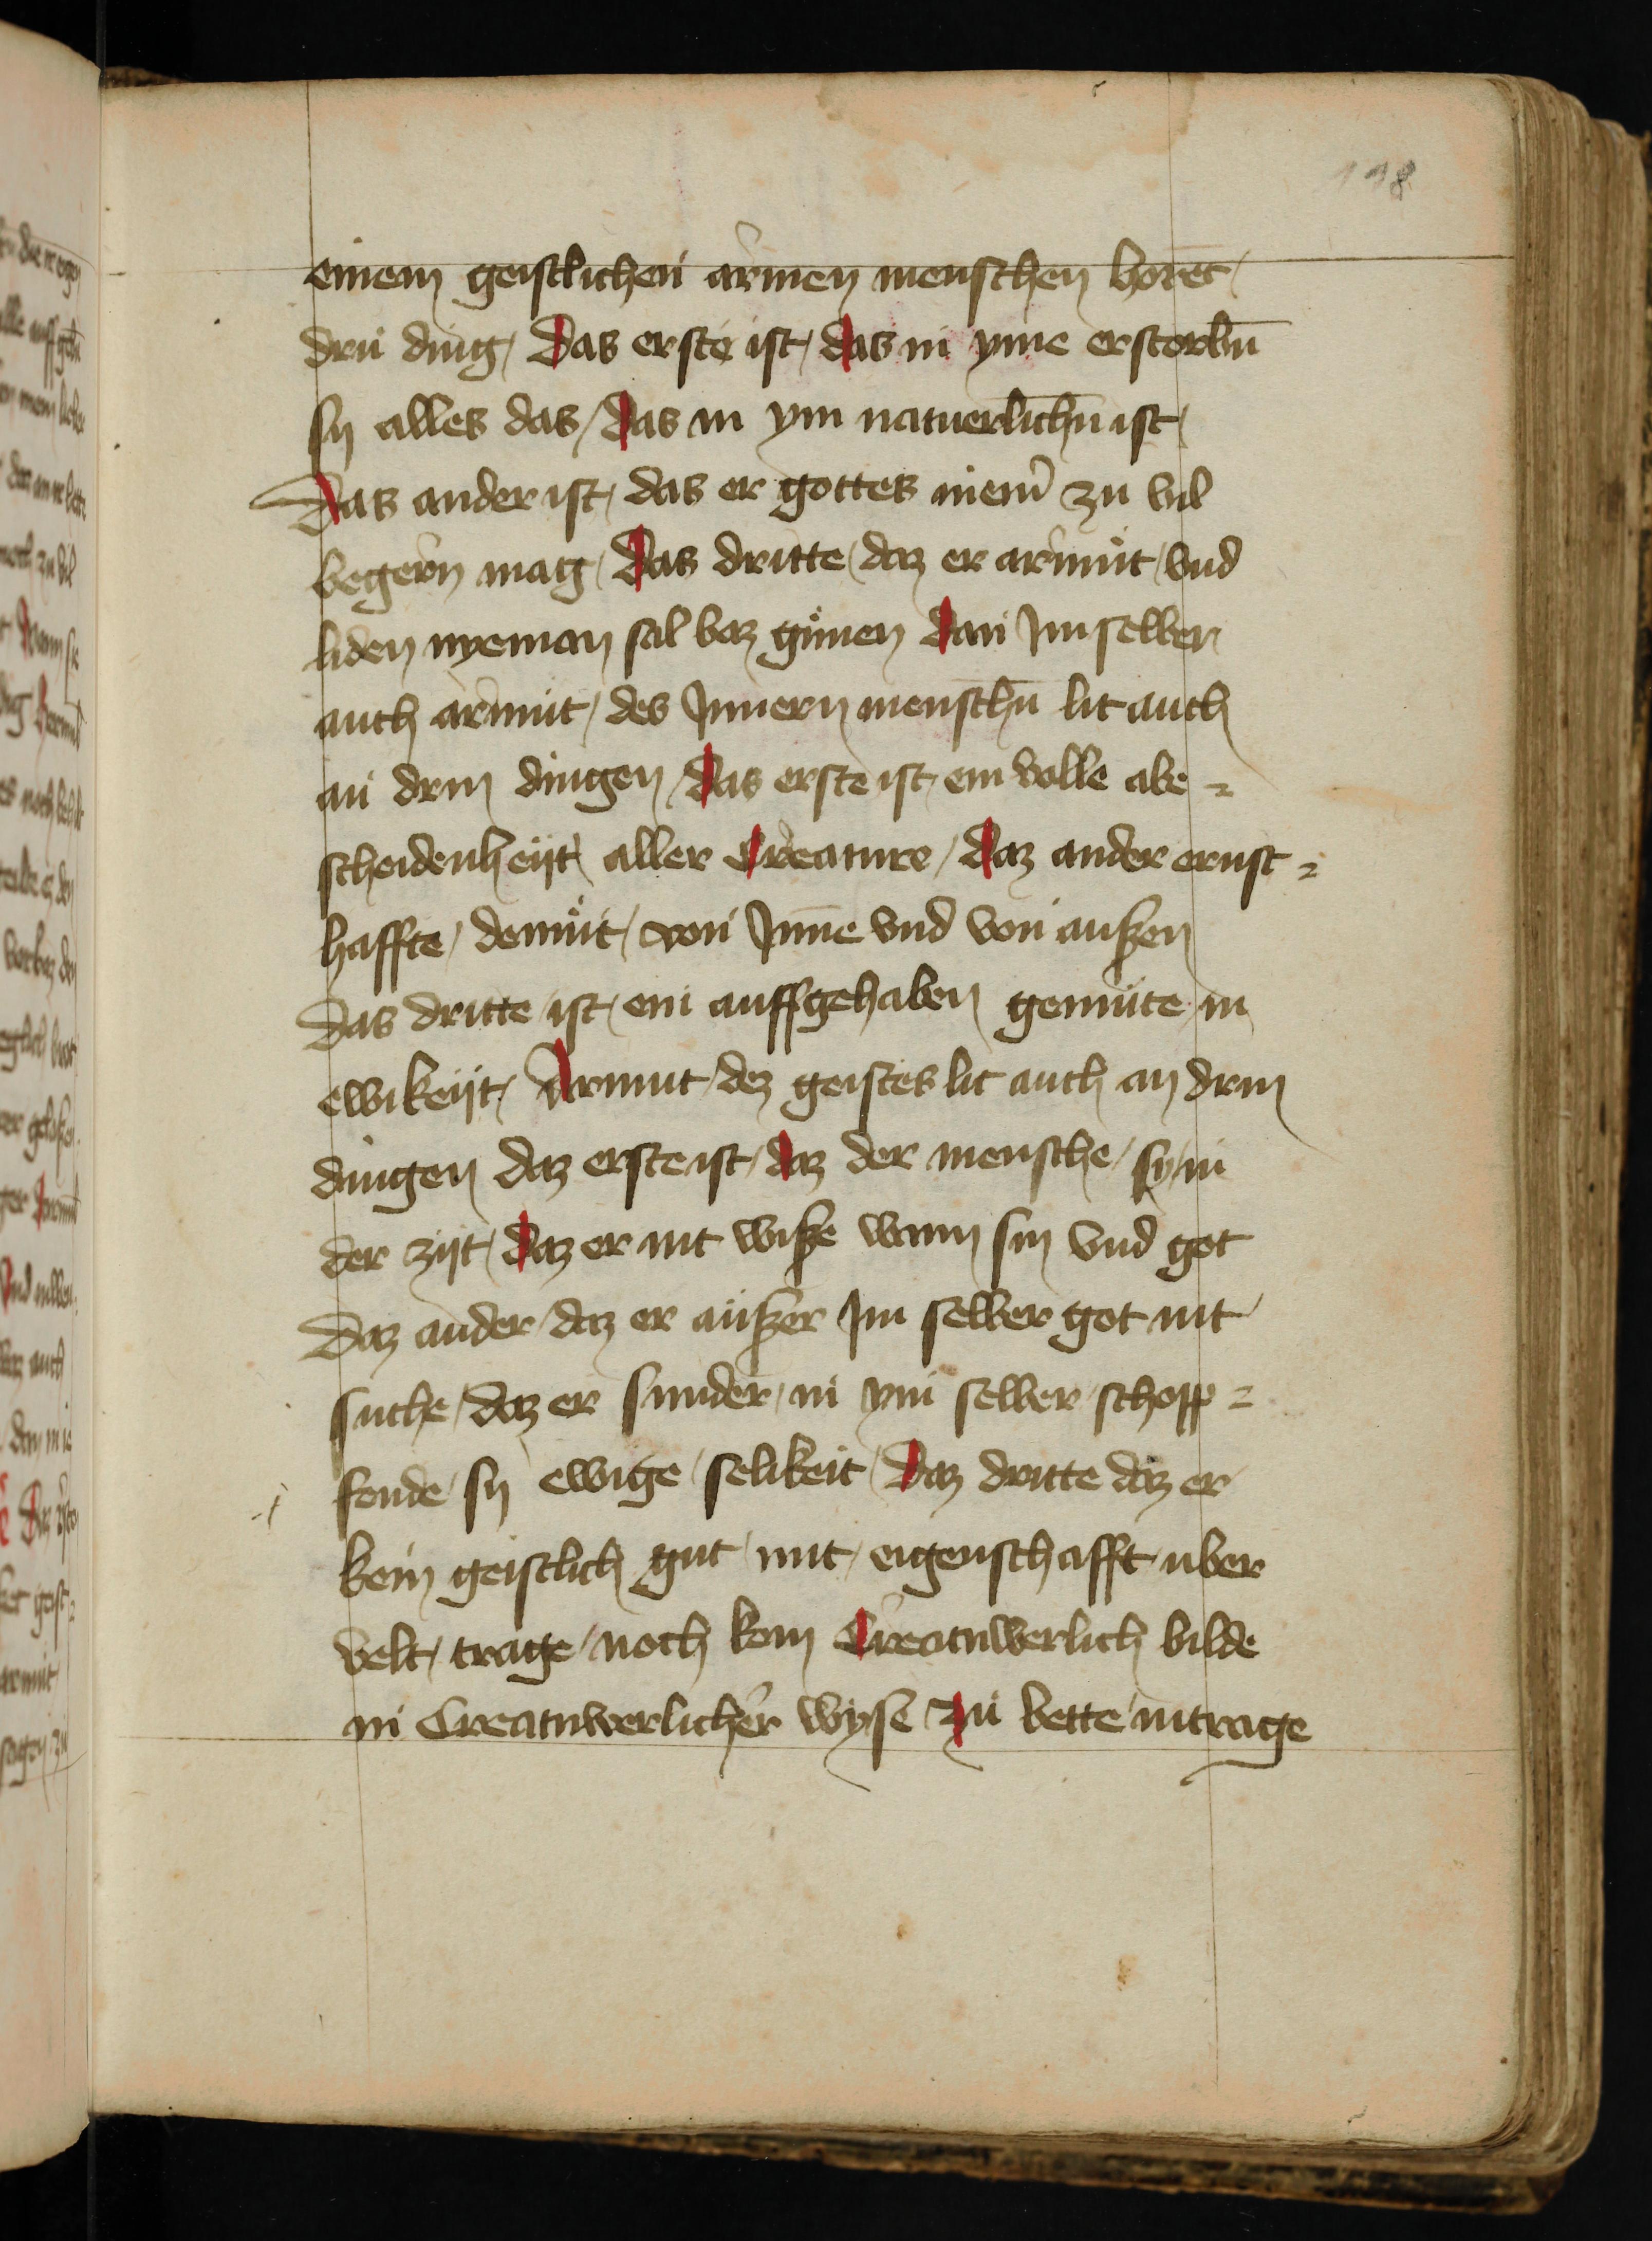 118
einem geistlichen armen menschen horet /
dru ding / Das erste ist / das in yme erstorbn̄
sy alles das / das in ym natuerlichn̄ ist /
Das ander ist / das er gottes niem̄ zu vil
begern mag / Das dritte / daz er armůt / vnd
liden nyeman sal baz gůnen dan Im selber
auch armut / des Innern menschn̄ lit auch
an drin dingen / Das erste ist / ein volle abe =
scheidenheijt aller Creature / daz ander ernst =
haffte / demůt / von Inn̄e vnd von außen
Das dritte ist / ein auffgehaben gemüte / in
ewikeijt / Armut / dez geistes lit auch an drin
dingen daz erste ist / daz der mensche / sy / in
der zijt / daz er nit wiße wann sin vnd got
Daz ander / daz er außer Im selber got nit
suche / daz er sunder / in ym selber / schopp =
fende / sy ewige / selikeit / Daz dritte daz er
kein geistlich gut / mit / eigenschafft / uber
velt / trage / noch kein Creatuwerlich bilde
in Creatuwerlicher wyse zu bette intrage